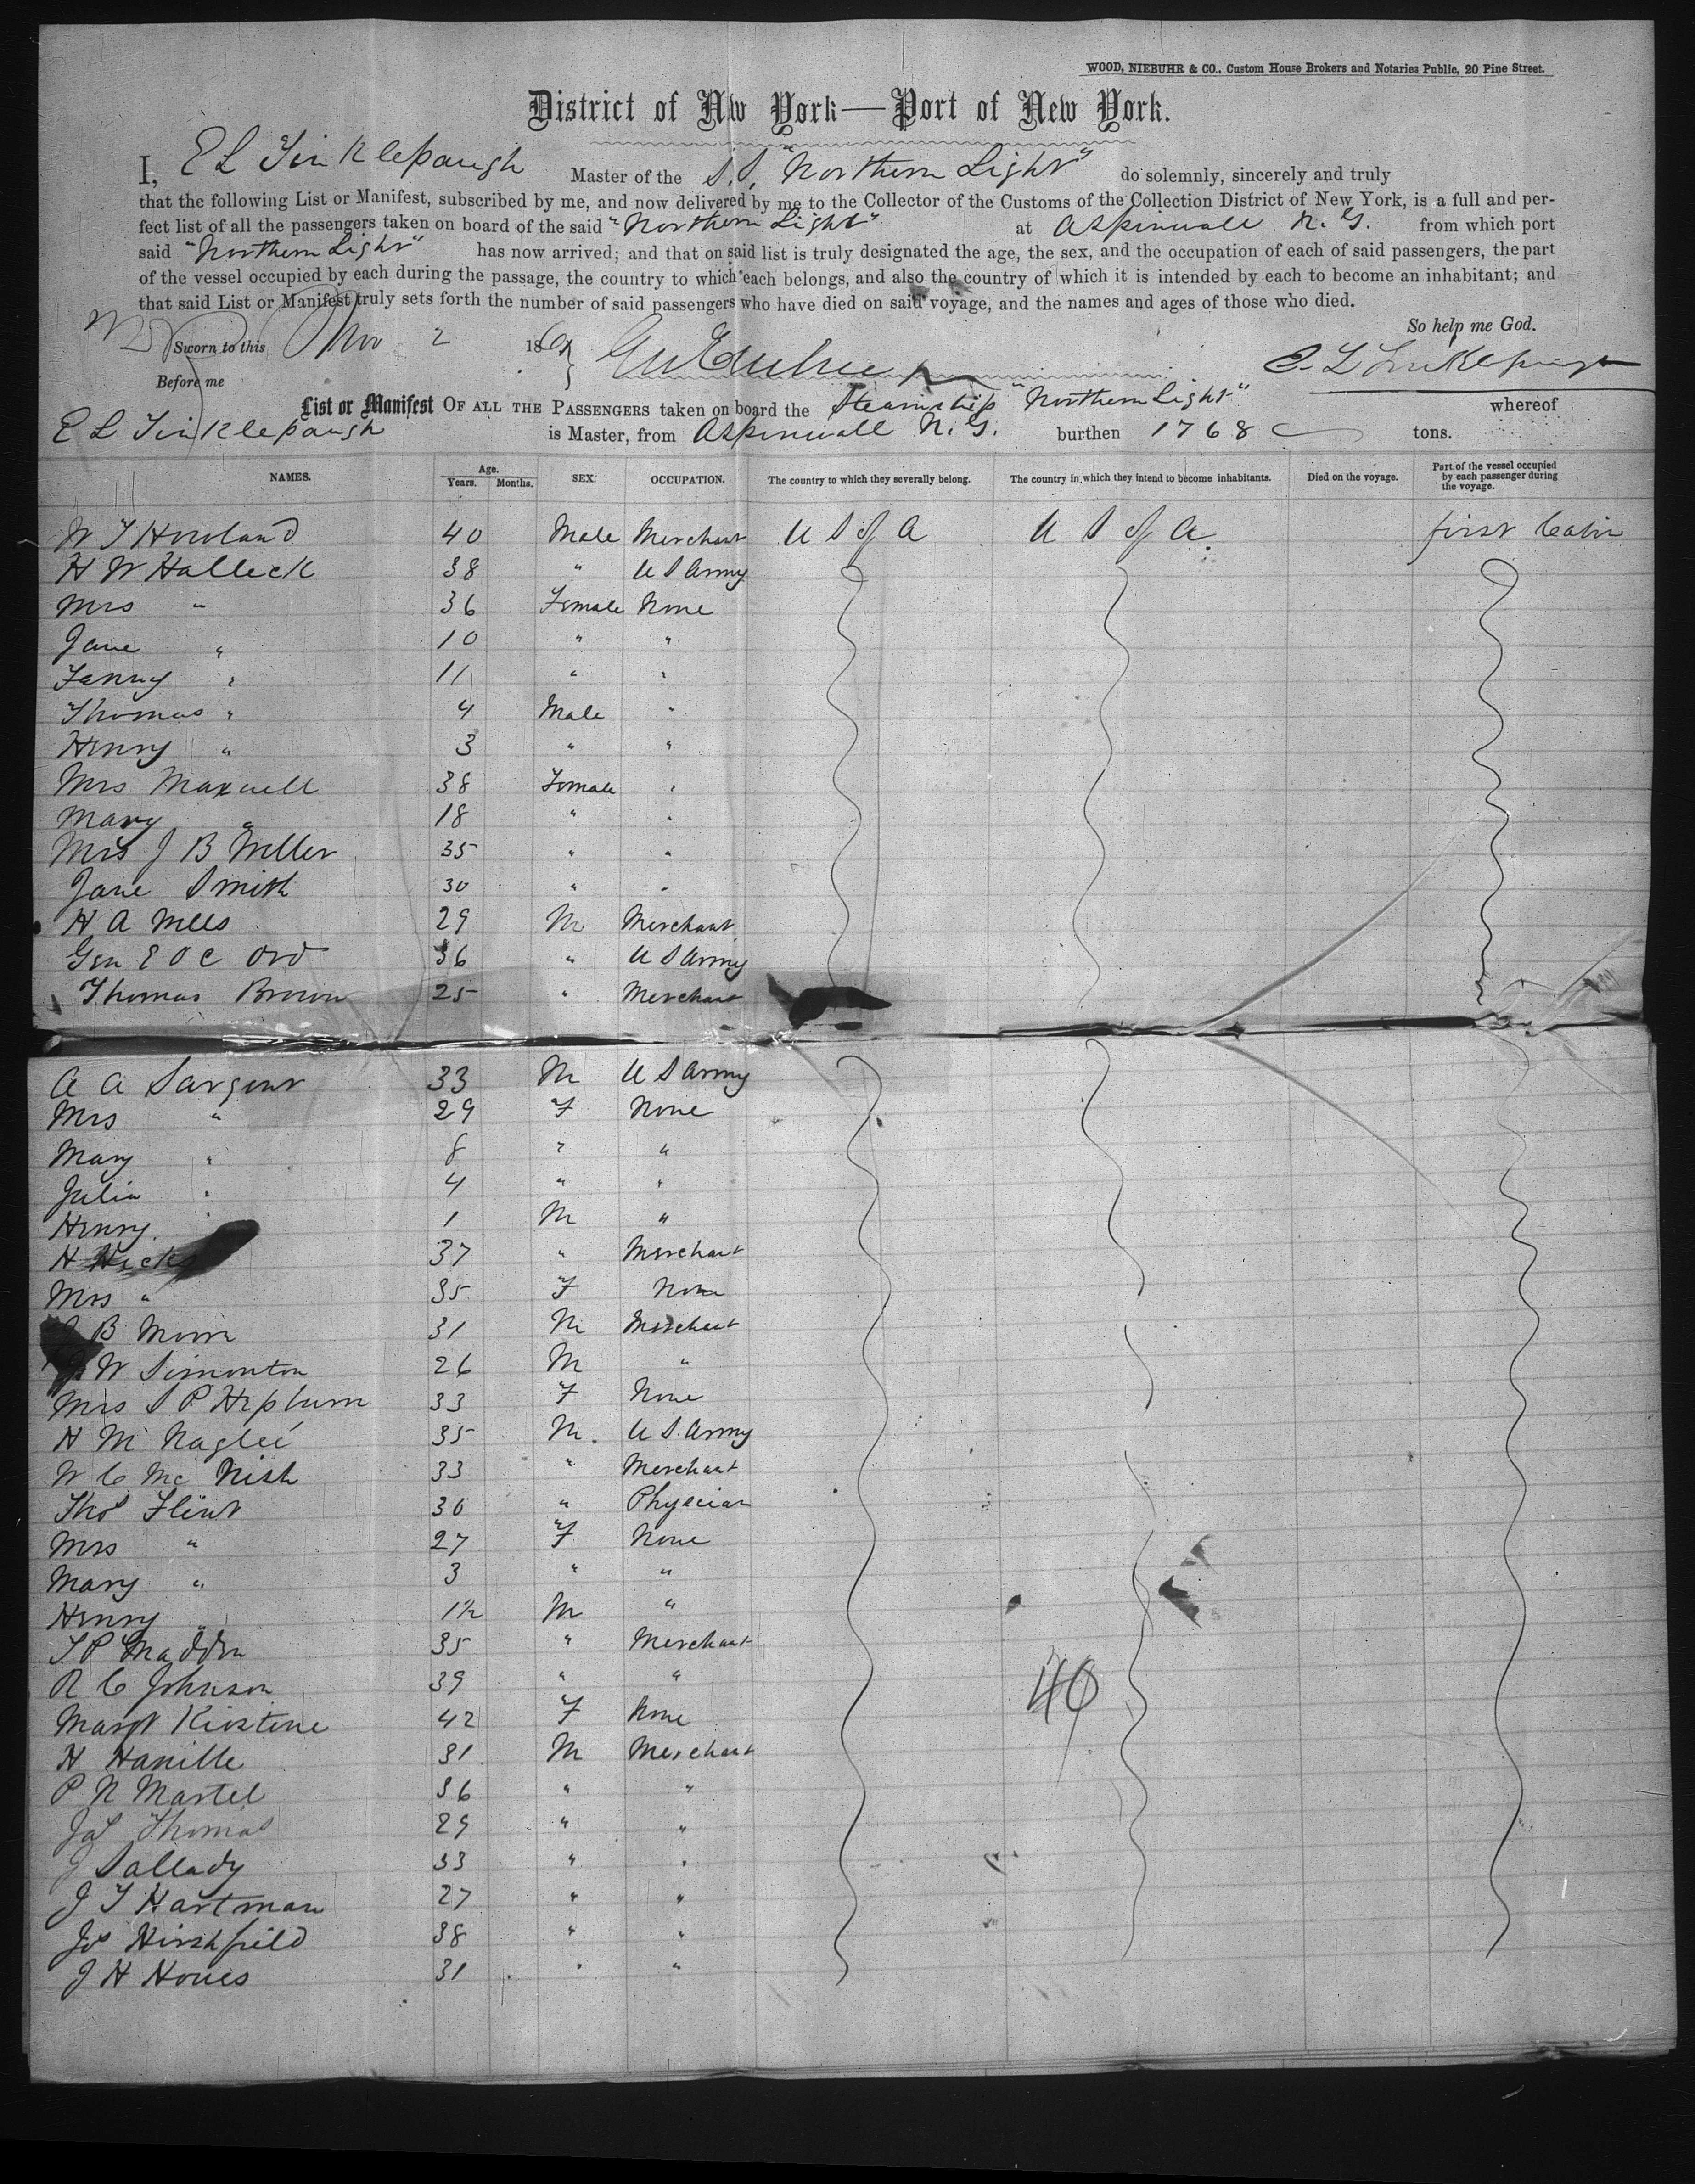 WOOD, NIEBUHR & CO., Custom House Brokers and Notaries Public, 20 Pine Street.
District of Nw York—Port of New York.
I, E L Tinklepaugh Master of the S.S. "Northern Light" do solemnly, sincerely and truly
that the following List or Manifest, subscribed by me, and now delivered by me to the Collector of the Customs of the Collection District of New York, is a full and per-
fect list of all the passengers taken on board of the said "Northern Light" at Aspinwall N. G. from which port
said "Northern Light" has now arrived; and that on said list is truly designated the age, the sex, and the occupation of each of said passengers, the part
of the vessel occupied by each during the passage, the country to which each belongs, and also the country of which it is intended by each to become an inhabitant; and
that said List or Manifest truly sets forth the number of said passengers who have died on said voyage, and the names and ages of those who died.
So help me God.
Sworn to this Nov 2 1861
E. L Tinklepaugh
Before me
List or Manifest OF ALL THE PASSENGERS taken on board the Steamship "Northern Light" whereof
E L Tinklepaugh is Master, from Aspinwall N. G. burthen 1768 tons.
NAMES. Age. Years. Months. SEX. OCCUPATION. The country to which they severally belong. The country in which they intend to become inhabitants. Died on the voyage. Part of the vessel occupied by each passenger during the voyage.
W T Howland 40 Male Merchant U S of A U S of A first Cabin
H W Halleck 38 " U S Army
Mrs " 36 Female None
Jane " 10 " "
Fanny " 11 " "
Thomas " 4 Male "
Henry " 3 " "
Mrs Maxwell 38 Female "
Mary " 18 " "
Mrs J B Weller 35 " "
Jane Smith 30 " "
H A Wells 29 M Merchant
Gen E O C Ord 36 " U S Army
Thomas Brown 25 " Merchant
A A Sargent 33 M U S Army
Mrs " 29 F None
Mary " 8 " "
Julia " 4 " "
Henry " 1 M "
H Hicks 37 " Merchant
Mrs " 35 F None
B 31 M Merchant
W Simonton 26 M "
Mrs S P Hepburn 33 F None
H M Naglee 35 M. U S Army
W C Mc Nish 33 " Merchant
Thos Flint 30 " Physician
Mrs " 27 F None
Mary " 3 " "
Henry " 1½ M "
T P Madden 35 " Merchant
R C Johnson 39 " "
Margt Kirstine 42 F None
H Hamille 31 M Merchant
P N Martel 36 " "
Jas Thomas 29 " "
J Sallady 33 " "
J T Hartman 27 " "
Jos Hirshfield 38 " "
J H 31 " "
40